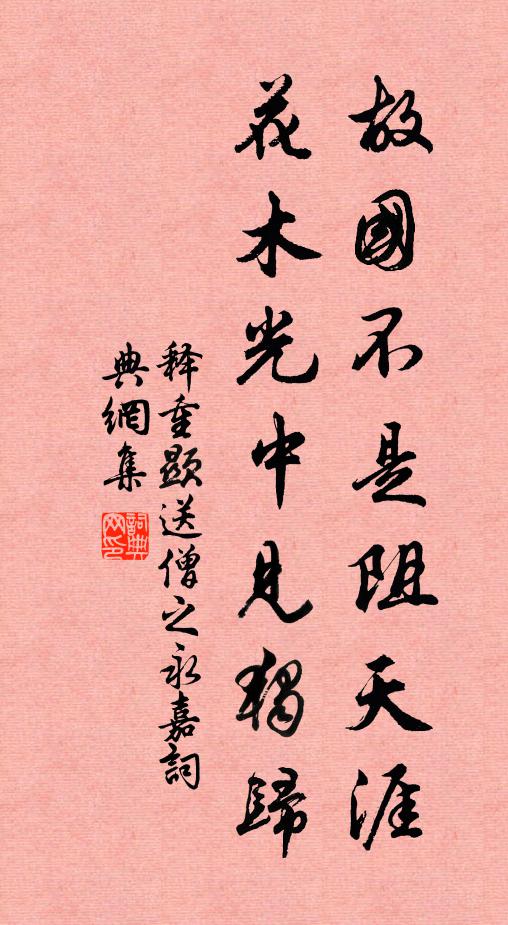 故國不是阻天涯
花木光中見獨歸
釋重顯送僧之永嘉詞
典網集
詞典網印